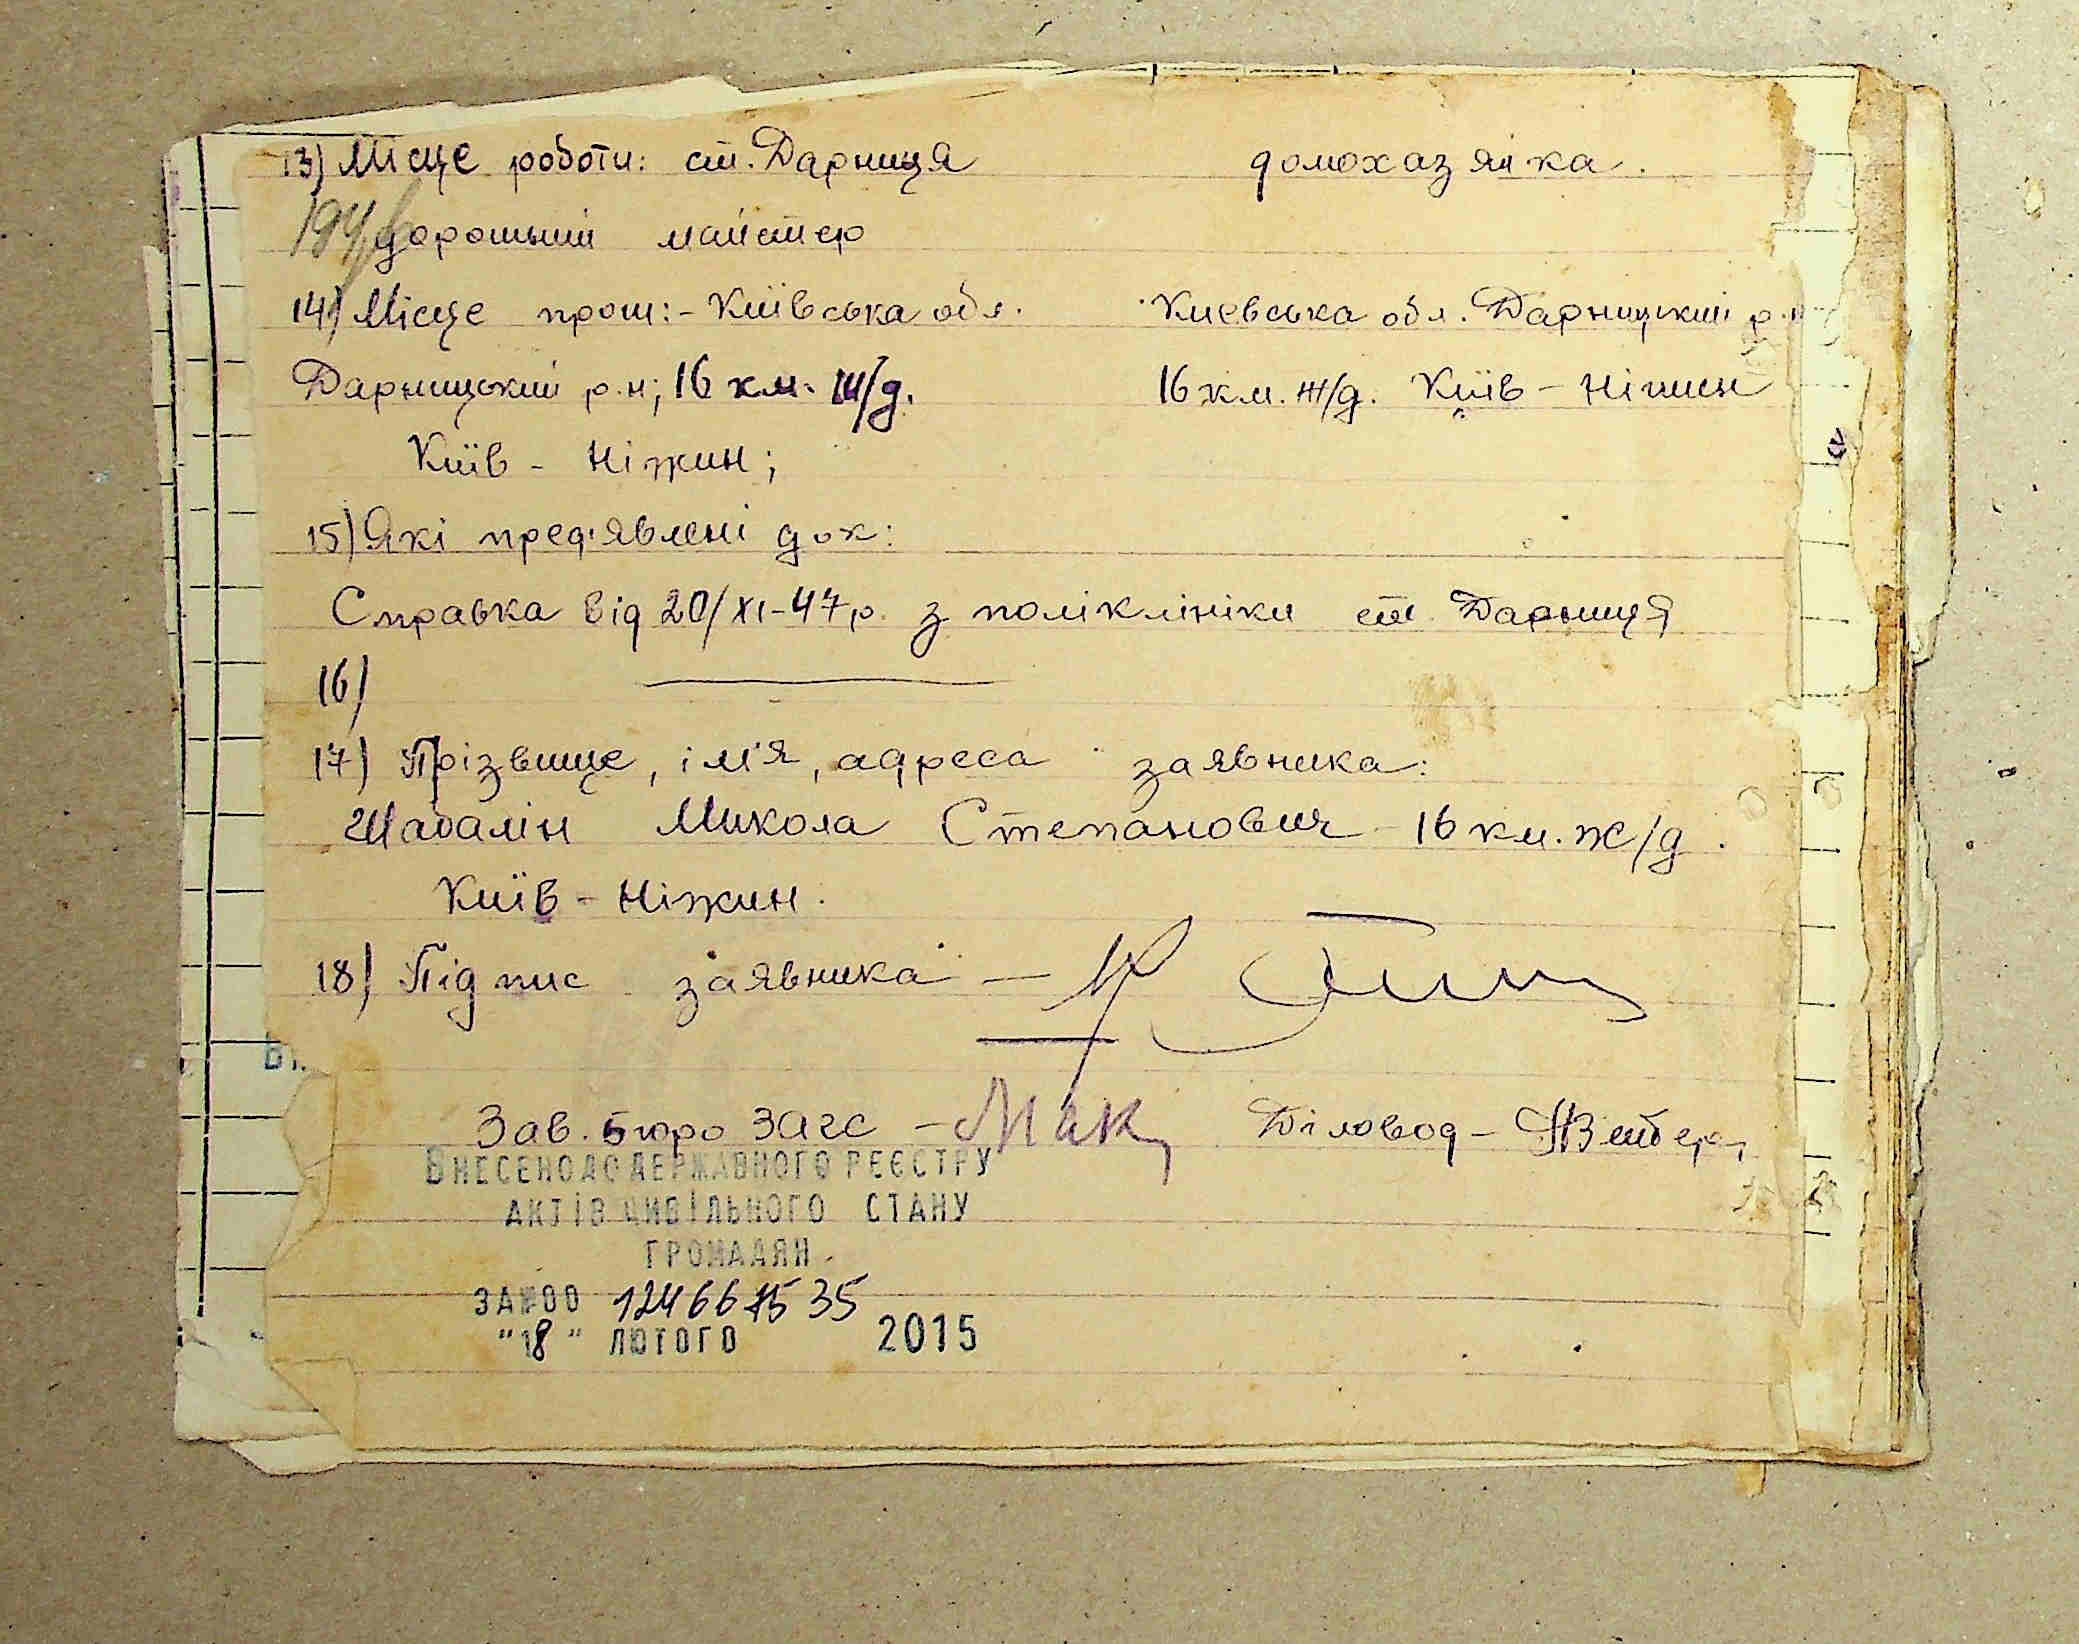 13) Місце роботи: ст. Дарниця домохазяйка.
дорожний майстер
14) Місце прож:- Київська обл. Киевська обл. Дарницький р.н
Дарницький р.н; 16 км. ж/д. 16 км. ж/д. Київ - Ніжин
Київ - Ніжин;
15) Які пред'явлені док:
Справка від 20/XI-47р. з поліклініки ст. Дарниця
16)
17) Прізвище, ім'я, адреса заявника:
Шабалін Микола Степанович - 16 км. ж/д.
Київ - Ніжин.
18) Підпис заявника -
Зав. бюро ЗАГС - Діловод -
ВНЕСЕНО ДО ДЕРЖАВНОГО РЕЄСТРУ
АКТІВ ЦИВІЛЬНОГО СТАНУ
ГРОМАДЯН
ЗА №00
"18" ЛЮТОГО 2015